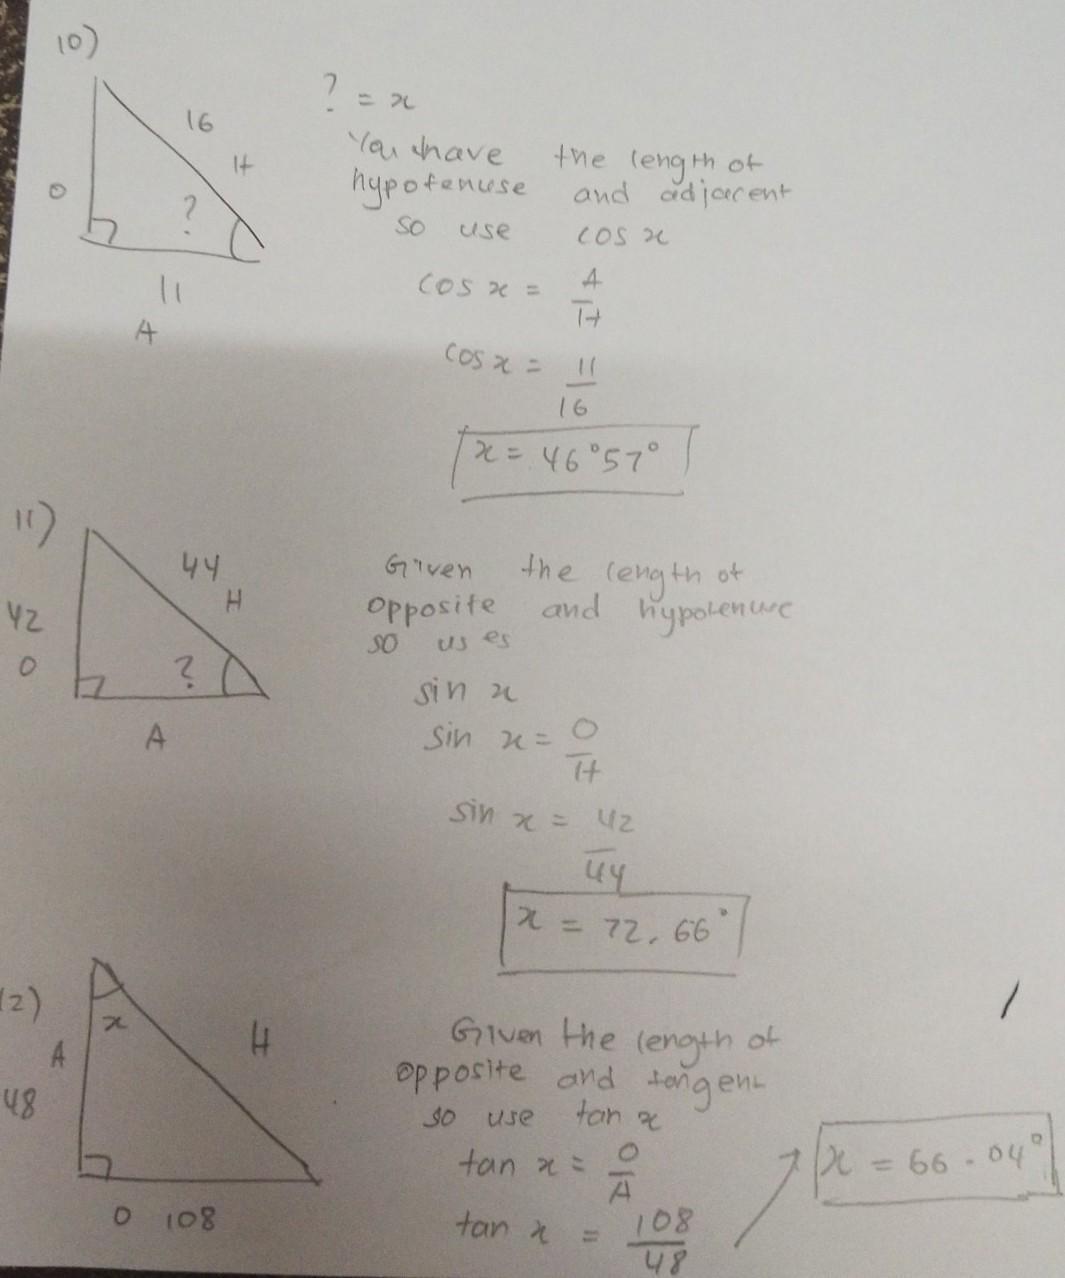 10)
16
H
O
?
11
A
? = x
You have the length of
hypotenuse and adjacent
so use cos x
cos x = A/H
cos x = 11/16
x = 46°57°
11)
44
H
42
O
?
A
Given the length of
opposite and hypotenuse
so uses
sin x
sin x = O/H
sin x = 42/44
x = 72.66°
12)
x
H
A
48
O 108
Given the length of
opposite and tangent
so use tan x
tan x = O/A
tan x = 108/48
x = 66.04°